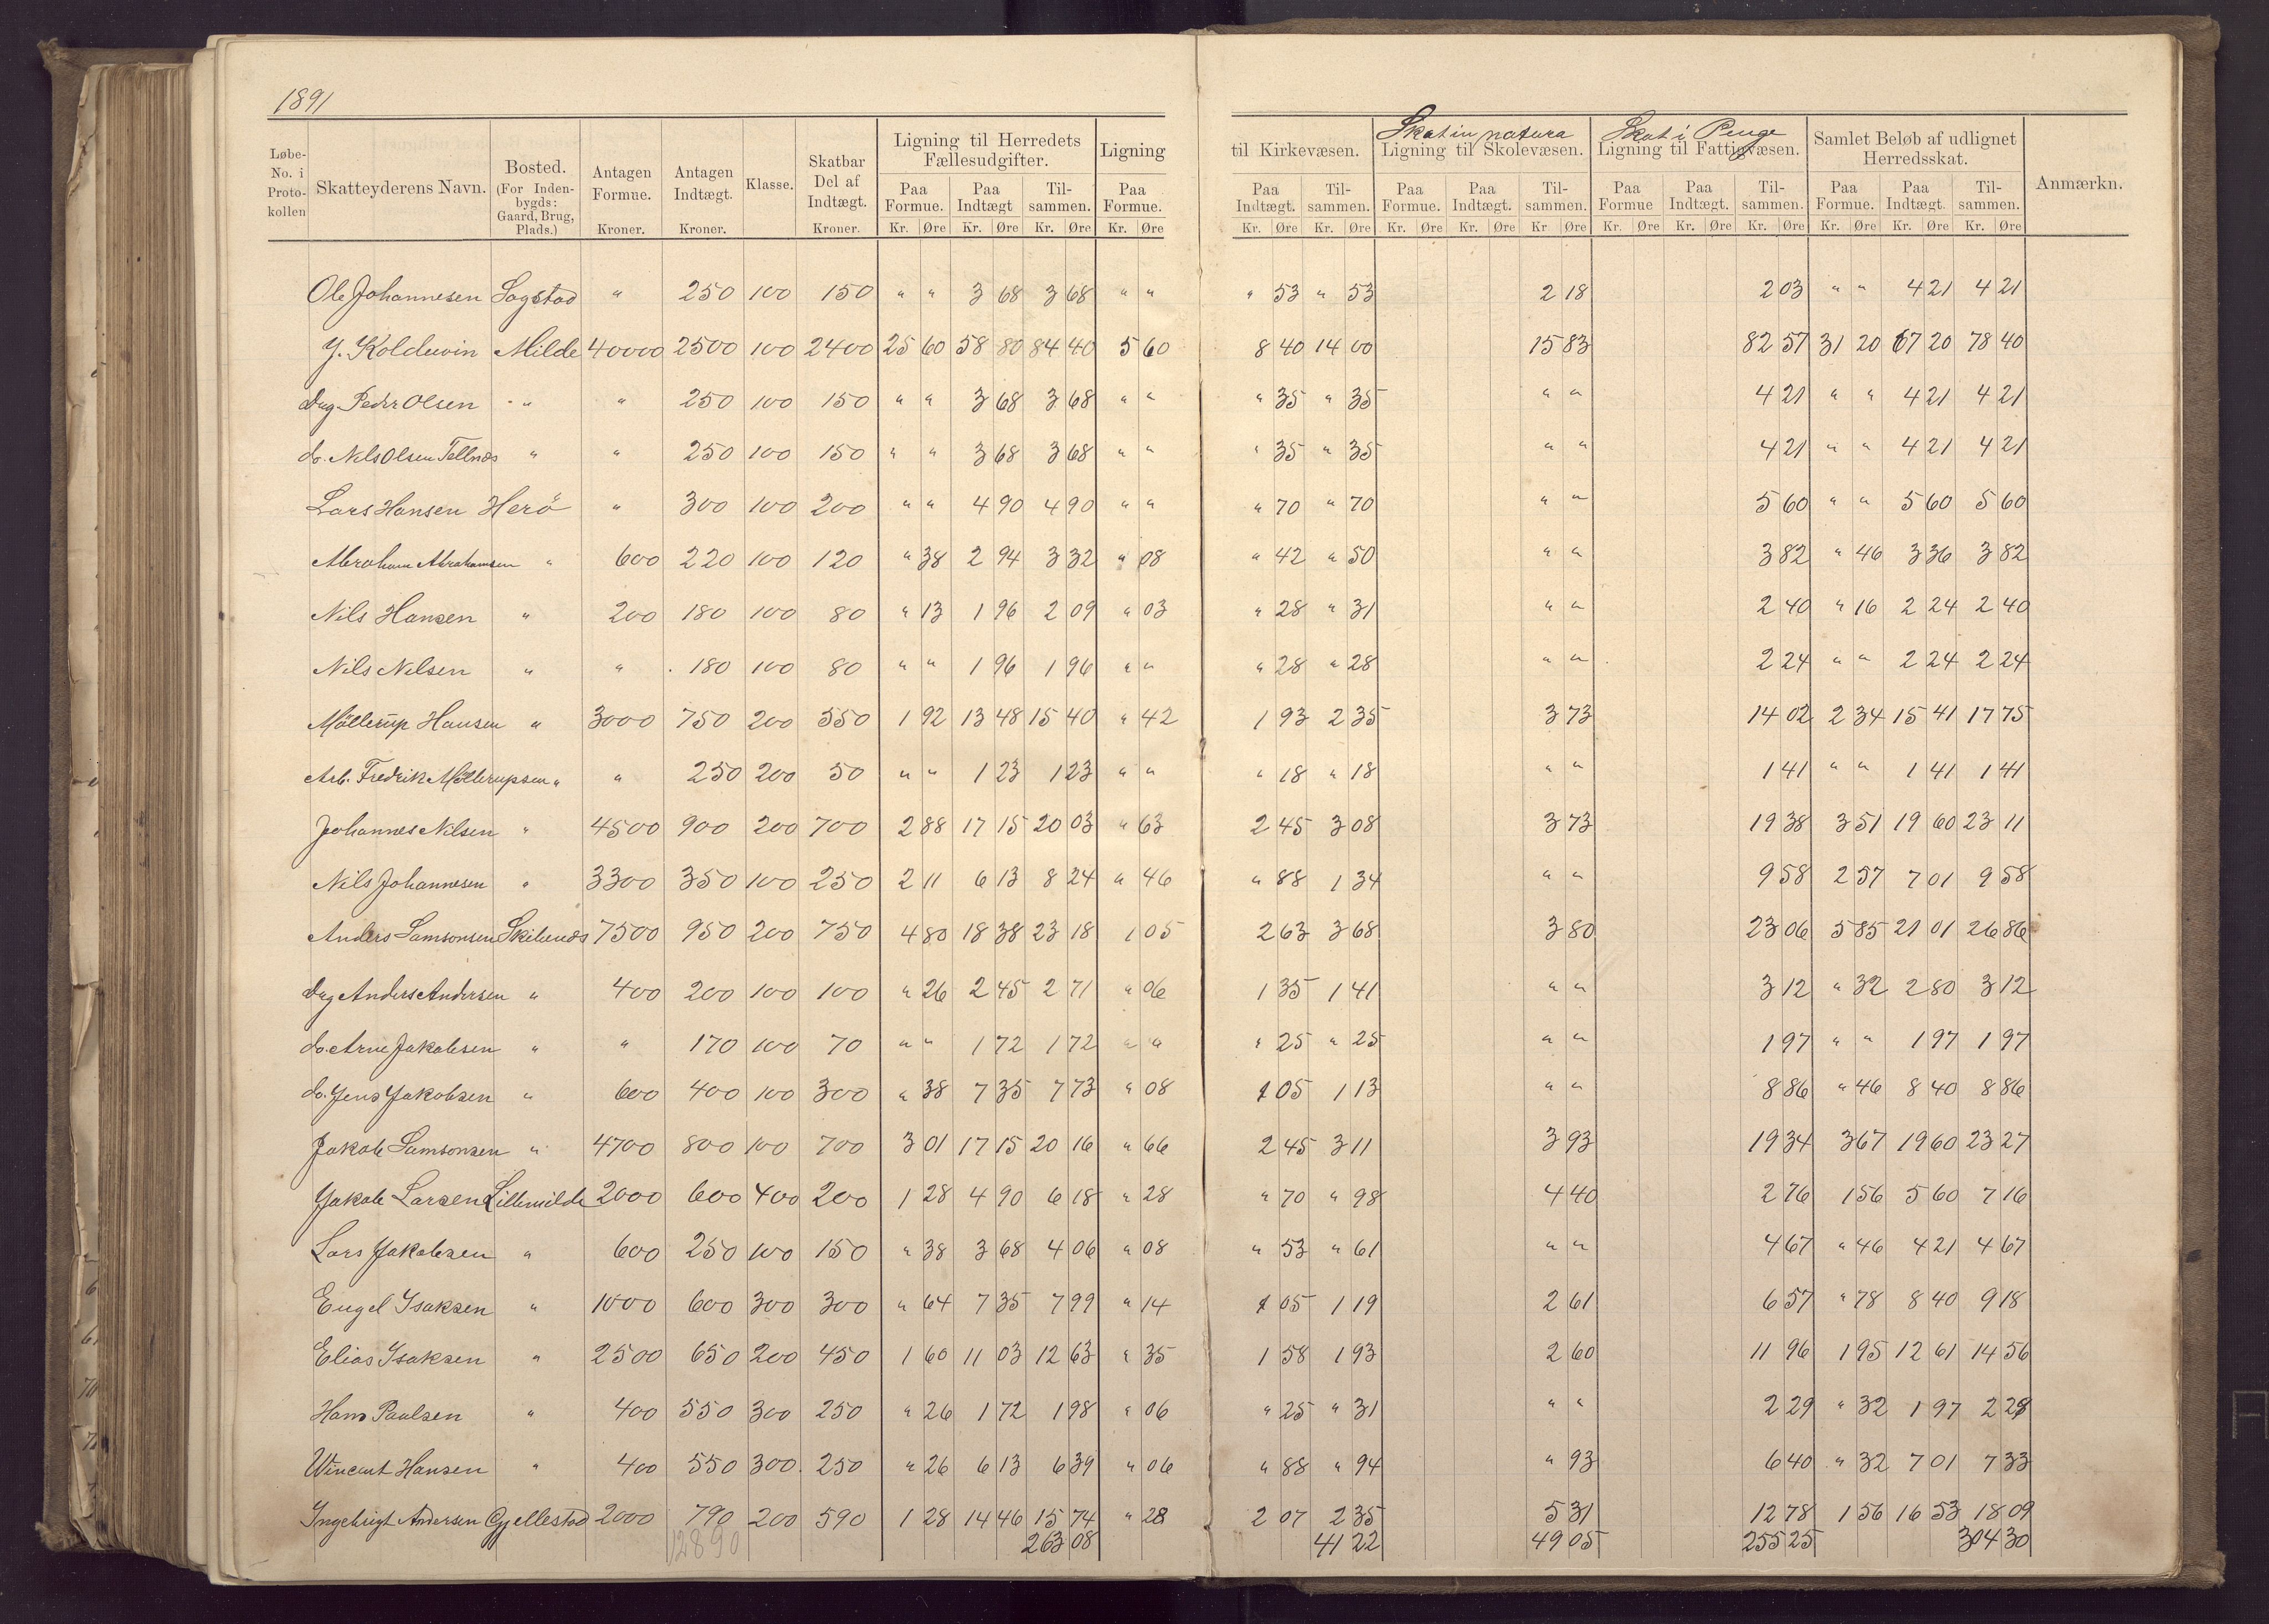 1891
Løbe-No. i Proto-kollen | Skatteyderens Navn. | Bosted. (For Inden-bygds: Gaard, Brug, Plads.) | Antagen Formue. Kroner. | Antagen Indtægt. Kroner. | Klasse. | Skatbar Del af Indtægt. Kroner. | Ligning til Herredets Fællesudgifter. Paa Formue. Kr. Øre | Paa Indtægt Kr. Øre | Til-sammen. Kr. Øre | Ligning Paa Formue. Kr. Øre | til Kirkevæsen. Paa Indtægt. Kr. Øre | Til-sammen. Kr. Øre | Skat in natura Ligning til Skolevæsen. Paa Formue. Kr. Øre | Paa Indtægt. Kr. Øre | Til-sammen. Kr Øre | Skat i Penge Ligning til Fattigvæsen. Paa Formue Kr. Øre | Paa Indtægt. Kr. Øre | Til-sammen. Kr. Øre | Samlet Beløb af udlignet Herredsskat. Paa Formue. Kr. Øre | Paa Indtægt. Kr. Øre | Til-sammen. Kr. Øre | Anmærkn.
Ole Johannesen Sagstad " 250 100 150 " " 3 68 3 68 " " " 53 " 53 2 18 2 03 " " 4 21 4 21
J. Koldewin Milde 40000 2500 100 2400 25 60 58 80 84 40 5 60 8 40 14 00 15 83 82 57 31 20 67 20 78 40
Dug Peder Olsen " " 250 100 150 " " 3 68 3 68 " " " 35 " 35 " " 4 21 " " 4 21 4 21
do. Nils Olsen Tellnes " " 250 100 150 " " 3 68 3 68 " " " 35 " 35 " " 4 21 " " 4 21 4 21
Lars Hansen Herö " 300 100 200 " " 4 90 4 90 " " " 70 " 70 " " 5 60 " " 5 60 5 60
Abraham Abrahamsen " 600 220 100 120 " 38 2 94 3 32 " 08 " 42 " 50 " " 3 82 " 46 3 36 3 82
Nils Hansen " 200 180 100 80 " 13 1 96 2 09 " 03 " 28 " 31 " " 2 40 " 16 2 24 2 40
Nils Nilsen " " 180 100 80 " " 1 96 1 96 " " " 28 " 28 " " 2 24 " " 2 24 2 24
Möllerup Hansen " 3000 750 200 550 1 92 13 48 15 40 " 42 1 93 2 35 3 73 14 02 2 34 15 41 17 75
Arb. Fredrik Möllerupsen " " 250 200 50 " " 1 23 1 23 " " " 18 " 18 " " 1 41 " " 1 41 1 41
Johannes Nilsen " 4500 900 200 700 2 88 17 15 20 03 " 63 2 45 3 08 3 73 19 38 3 51 19 60 23 11
Nils Johannesen " 3300 350 100 250 2 11 6 13 8 24 " 46 " 88 1 34 " " 9 58 2 57 7 01 9 58
Anders Samsonsen Skilenæs 7500 950 200 750 4 80 18 38 23 18 1 05 2 63 3 68 3 80 23 06 5 85 21 01 26 86
Dug Anders Andersen " 400 200 100 100 " 26 2 45 2 71 " 06 1 35 1 41 " " 3 12 " 32 2 80 3 12
do. Arne Jakobsen " " 170 100 70 " " 1 72 1 72 " " " 25 " 25 " " 1 97 " " 1 97 1 97
do. Jens Jakobsen " 600 400 100 300 " 38 7 35 7 73 " 08 1 05 1 13 " " 8 86 " 46 8 40 8 86
Jakob Samsonsen " 4700 800 100 700 3 01 17 15 20 16 " 66 2 45 3 11 3 93 19 34 3 67 19 60 23 27
Jakob Larsen Lillemilde 2000 600 400 200 1 28 4 90 6 18 " 28 " 70 " 98 4 40 2 76 1 56 5 60 7 16
Lars Jakobsen " 600 250 100 150 " 38 3 68 4 06 " 08 " 53 " 61 " " 4 67 " 46 4 21 4 67
Engel Isaksen " 1000 600 300 300 " 64 7 35 7 99 " 14 1 05 1 19 2 61 6 57 " 78 8 40 9 18
Elias Isaksen " 2500 650 200 450 1 60 11 03 12 63 " 35 1 58 1 93 2 60 11 96 1 95 12 61 14 56
Hans Paulsen " 400 550 300 250 " 26 1 72 1 98 " 06 " 25 " 31 " " 2 29 " 32 1 97 2 29
Wincent Hansen " 400 550 300 250 " 26 6 13 6 39 " 06 " 88 " 94 " 93 6 40 " 32 7 01 7 33
Ingebrigt Andersen Gjellestad 2000 790 200 590 1 28 14 46 15 74 " 28 2 07 2 35 5 31 12 78 1 56 16 53 18 09
12890 263 08 41 22 49 05 255 25 304 30